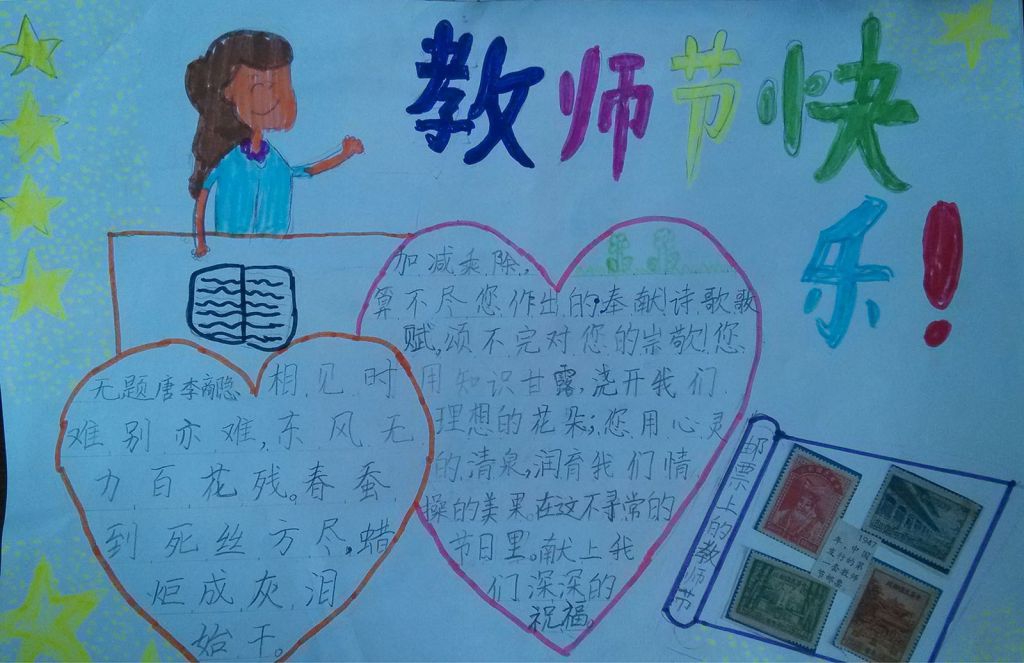 教师节快
乐!
加减乘除,
算不尽您作出的奉献!诗歌歌
赋,颂不完对您的崇敬!您
用知识甘露,浇开我们
理想的花朵;您用心灵
的清泉,润育我们情
操的美果在这不寻常的
节日里。献上我
们深深的
祝福。
无题唐李商隐 相见时
难别亦难,东风无
力百花残。春蚕
到死丝方尽,蜡
炬成灰泪
始干。
邮票上的教师节
1947
年,中国
发行的第
一套教师
节邮票